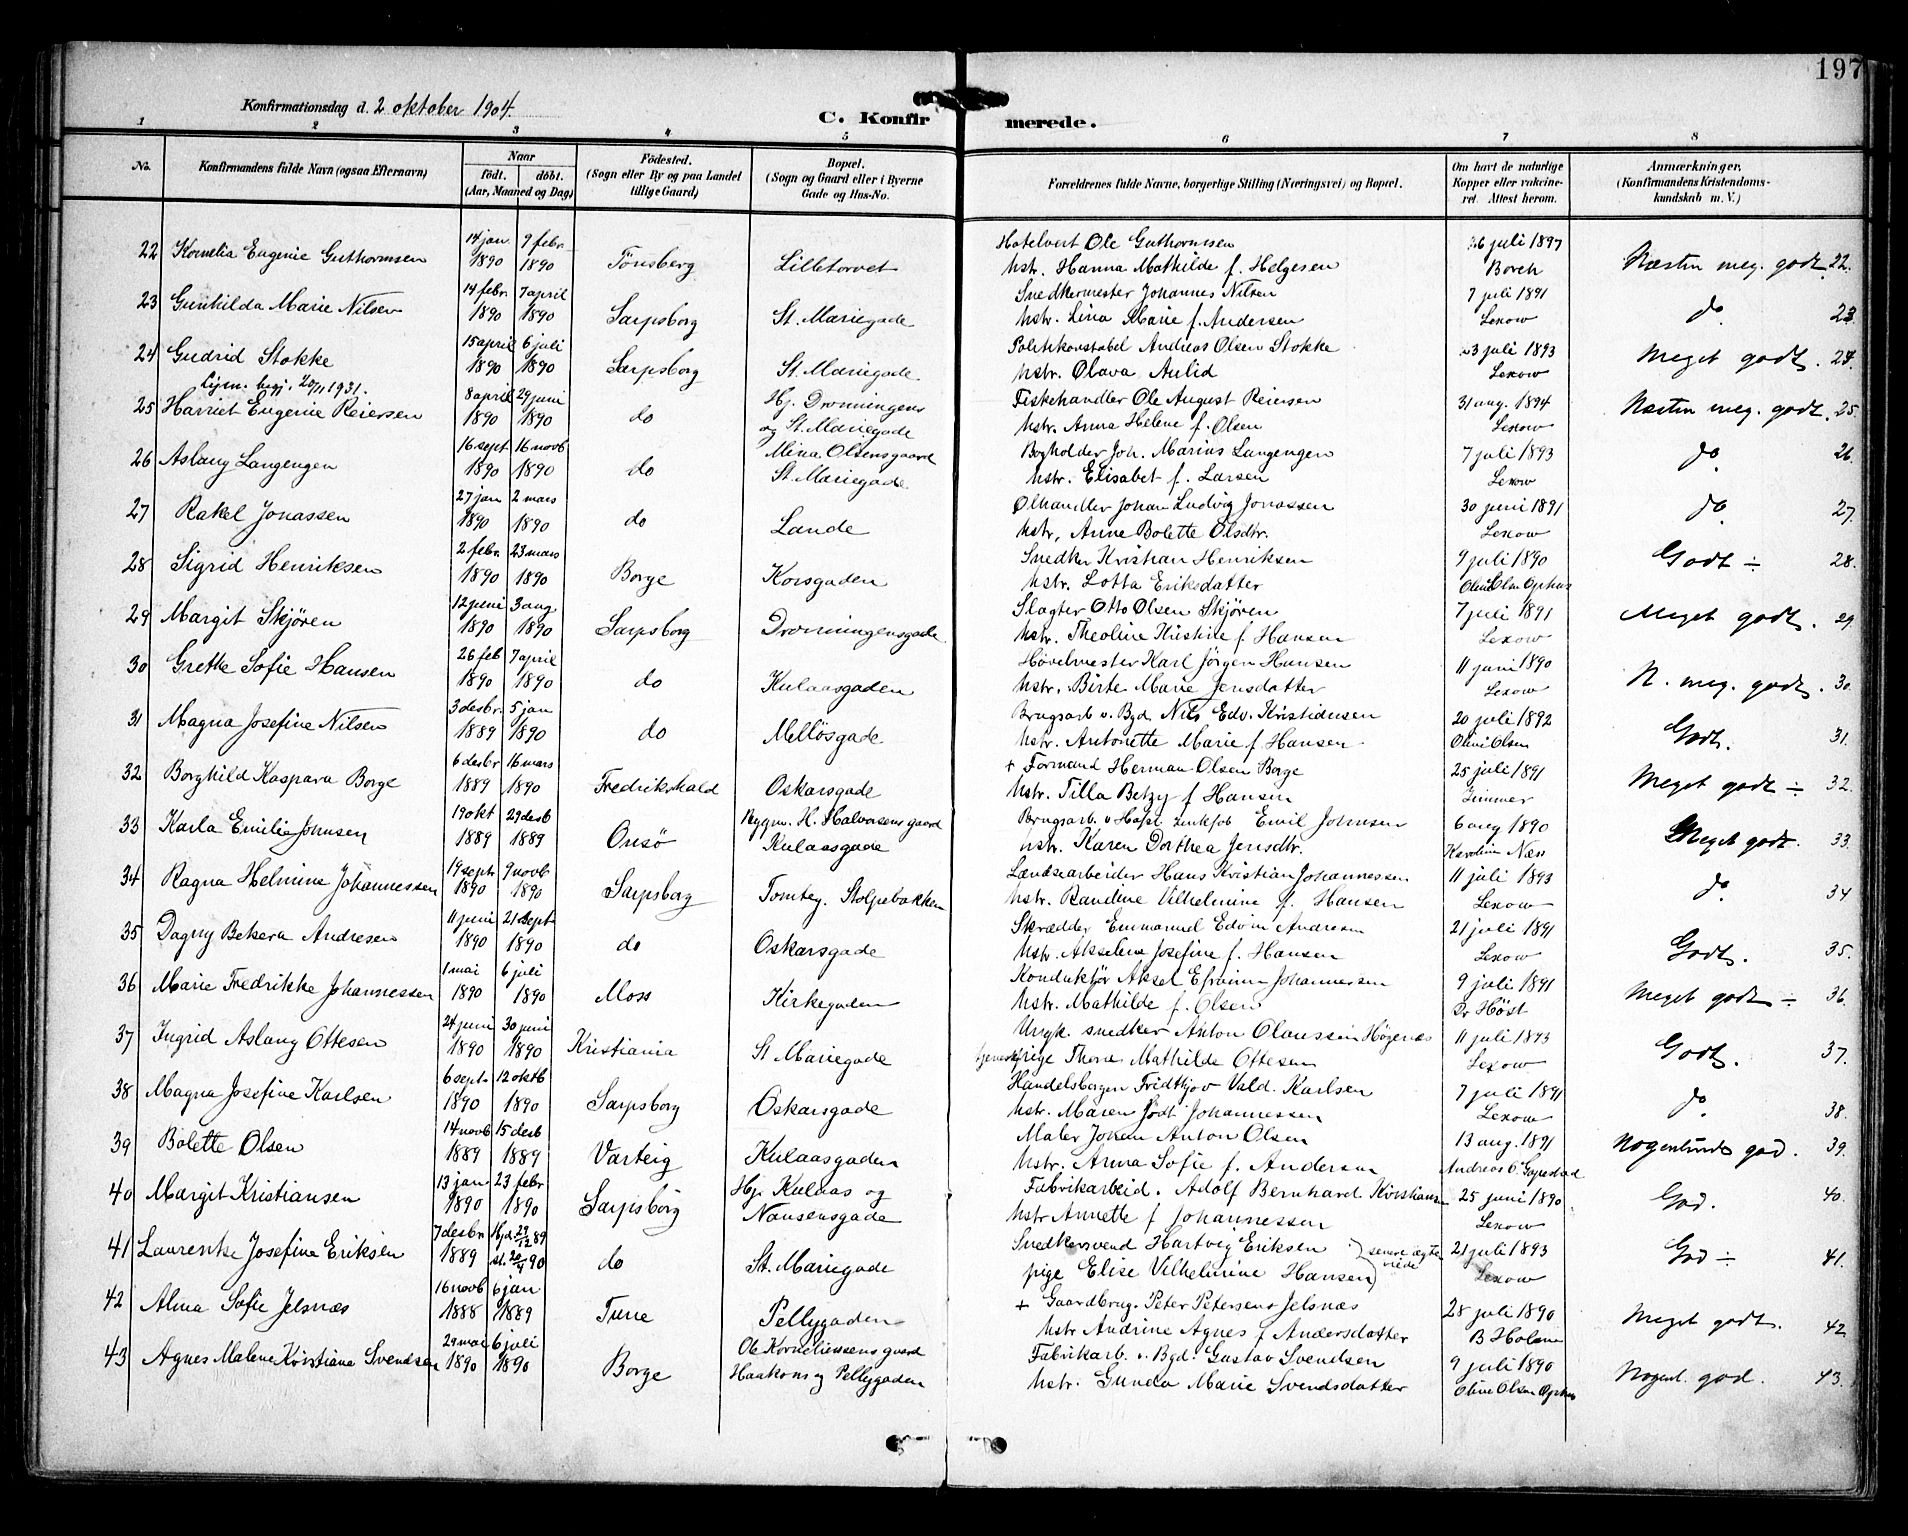 197
Konfirmationsdag d. 2 oktober 1904.
C. Konfirmerede.
1 2 3 4 5 6 7 8
No. Konfirmandens fulde Navn (ogsaa Efternavn) Naar födt. döbt. (Aar, Maaned og Dag) Födested. (Sogn eller By og paa Landet tillige Gaard) Bopæl. (Sogn og Gaard eller i Byerne Gade og Hus-No. Forældrenes fulde Navne, borgerlige Stilling (Næringsvei) og Bopæl. Om havt de naturlige Kopper eller vakcineret. Attest herom. Anmærkninger, (Konfirmandens Kristendomskundskab m. V.)
22 Kornelia Eugenie Guthormsen 14 jan. 1890 9 febr. 1890 Tönsberg Lilletorvet Hotelvert Ole Guthormsen Hstr. Hanna Mathilde f. Helgesen 26 juli 1897 Borch Næsten meg. godt. 22.
23 Gunhilda Marie Nilsen 14 febr. 1890 7 april 1890 Sarpsborg St. Mariegade Snedkermester Johannes Nilsen Hstr. Lina Marie f. Andersen 7 juli 1891 Lexow do 23.
24 Gudrid Stokke 15 april 1890 6 juli 1890 Sarpsborg St. Mariegade Politikonstabel Andreas Olsen Stokke Hstr. Olava Aulid 23 juli 1893 Lexow Meget godt. 24.
Ligm. begj. 20/11 1931.
25 Harriet Eugenie Reiersen 8 april 1890 29 juni 1890 do Hj. Dronningens og St. Mariegade Fiskehandler Ole August Reiersen Hstr. Anna Helene f. Olsen 31 aug. 1894 Lexow Næsten meg. godt. 25.
26 Aslaug Langengen 16 sept 1890 16 novb 1890 do Mina Olsensgaard St. Mariegade Bogholder Joh. Marius Langengen Hstr. Elisabet f. Larsen 7 juli 1893 Lexow do 26.
27 Rakel Jonassen 27 jan 1890 2 mars 1890 do Lande Ölhandler Johan Ludvig Jonassen Hstr. Anne Bolette Olsdtr. 30 juni 1891 Lexow do 27.
28 Sigrid Henriksen 2 febr. 1890 23 mars 1890 Borge Korsgaden Snedker Kristian Henriksen Hstr. Lotta Eriksdatter 9 juli 1890 Olivi Olsn Ophus Godt ÷ 28.
29 Margit Skjören 12 juni 1890 3 aug 1890 Sarpsborg Dronningensgade Slagter Otto Olsen Skjören Hstr. Theoline Kristine f. Hansen 7 juli 1891 Lexow Meget godt. 29.
30 Grethe Sofie Hansen 26 feb 1890 7 april 1890 do Kulaasgaden Høvelmester Karl Jörgen Hansen Hstr. Birte Marie Jensdatter 11 juni 1890 Lexow N. meg. godt. 30.
31 Magna Josefine Nilsen 3 desbr. 1889 5 jan 1890 do Mellösgade Brugsarb. v. Bgd. Nils Edv. Kristiansen Hstr. Antonette Marie f. Hansen 20 juli 1892 Olivi Olsen Godt. 31.
32 Borghild Kaspara Borge 6 desbr 1889 16 mars 1890 Fredrikshald Oskarsgade + Formand Herman Olsen Borge Hstr. Tilla Betzy f Hansen 25 juli 1891 Zimmer Meget godt ÷ 32.
33 Karla Emilie Johnsen 19 okt 1889 29 desb 1889 Onsö Bygm. H. Halvorsens gaard Kulaasgade Brugsarb. v Hafsl. Zinkfab Emil Johnsen Hstr. Karen Dorthea Jensdtr. 6 aug 1890 Karoline Næss Meget godt. 33.
34 Ragna Helmine Johannessen 19 sept. 1890 9 novb 1890 Sarpsborg Tomteg. Stolpebakken Landsearbeider Hans Kristian Johannessen Hstr. Randine Vilhelmine f. Hansen 11 juli 1893 Lexow do 34
35 Dagny Betsera Andresen 11 juni 1890 21 sept 1890 do Oskarsgade Skrædder Emmanuel Edvin Andresen Hstr. Akseline Josefine f. Hansen 21 juli 1891 Lexow Godt. 35.
36 Marie Fredrikke Johannessen 1 mai 1890 6 juli 1890 Moss Kirkegaden Konduktör Aksel Efraim Johannessen Hstr. Mathilde f. Olsen 9 juli 1891 Dr Höst Meget godt ÷ 36.
37 Ingrid Aslaug Ottesen 24 juni 1890 30 juni 1890 Kristiania St Mariegade Ungk. snedker Anton Olaussen Högenæs pige Thora Mathilde Ottesen 11 juli 1893 Lexow Godt. 37.
38 Magna Josefine Karlsen 6 sept. 1890 12 oktb 1890 Sarpsborg Oskarsgade Handelsborger Fridthjov Vald. Karlsen Hstr. Maren födt Johannesen 7 juli 1891 Lexow do 38.
39 Bolette Olsen 14 novb 1889 15 desb 1889 Varteig Kulaasgaden Maler Johan Anton Olsen Hstr. Anna Sofie f. Andersen 13 aug. 1891 Andreas O. Nogenlunde god. 39.
40 Margit Kristiansen 13 jan 1890 23 febr. 1890 Sarpsborg Hj. Kulaas og Nansensgade Fabrikarbeid. Adolf Bernhard Kristiansen Hstr Annette f Johannessen 25 juni 1890 Lexow God. 40.
41 Laurentse Josefine Eriksen 7 desbr. 1889 Hjd. 29/12 89 st. 20/4 90 do St. Mariegade Snedkersvend Hartvig Eriksen pige Elise Vilhelmine Hansen) senere ægteviede 21 juli 1893 Lexow God ÷ 41.
42 Alma Sofie Jelsnæs 16 novb 1888 6 jan 1889 Tune Pellygaden + Gaardbrug. Peter Petersens Jelsnæs Hstr Andrine Agnes f Andersdatter 28 juli 1890 B Holme Meget godt. 42
43 Agnes Malene Kristiana Svendsen 29 mai 1890 6 juli 1890 Borge Ole Korneliussens gaard Haakons og Pellygaden Fabrikarb. v. Bgd. Gustav Svendsen Hstr. Gunda Marie Svendsdatter 9 juli 1890 Olive Olsen Ophus Nogenl. god. 43.